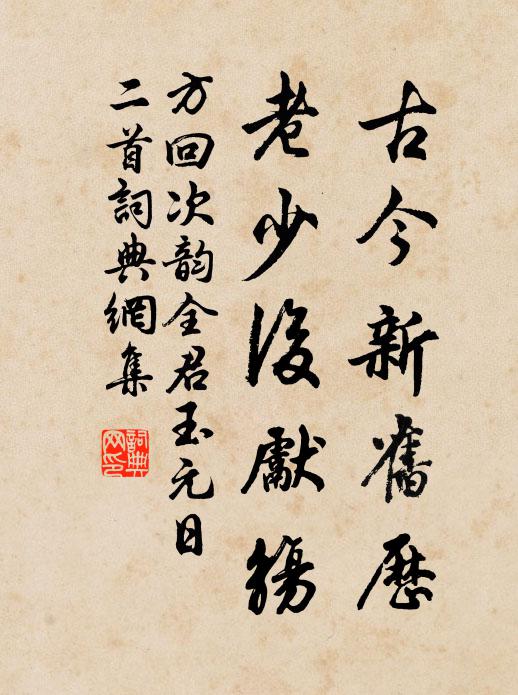 古今新舊歷
老少後獻觴
方回次韵全君玉元日
二首詞典網集
詞典
网印